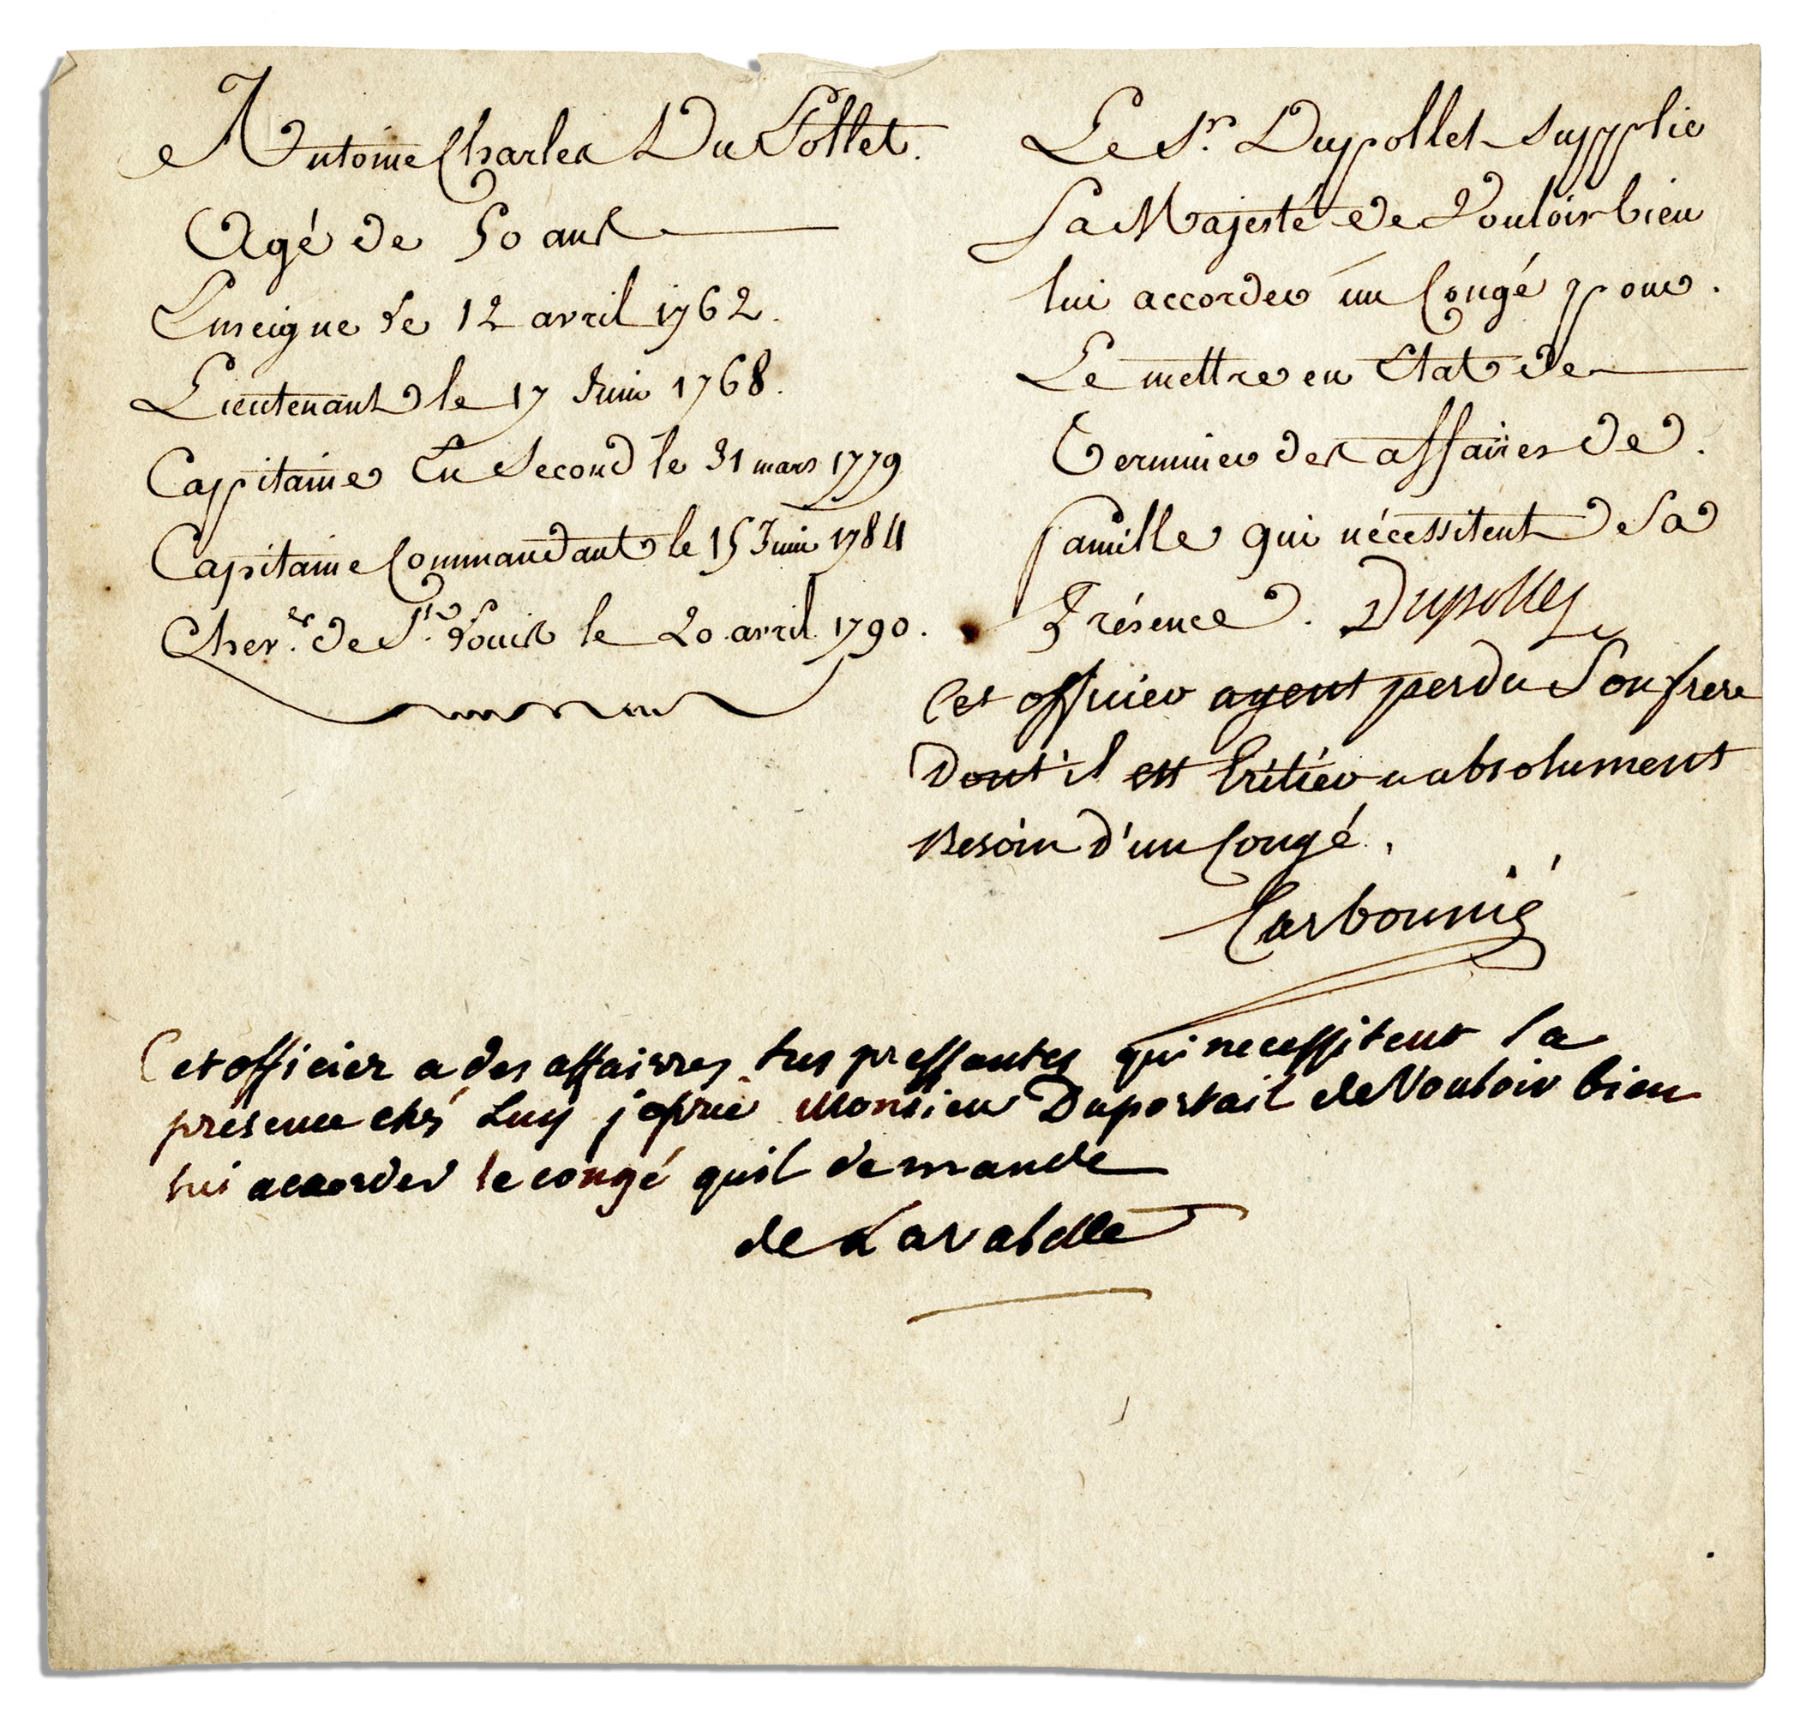 Antoine Charles Du Pollet.
Agé de 50 ans
Enseigne le 12 avril 1762.
Lieutenant le 17 Juin 1768.
Cappitaine En Second le 31 mars 1779
Capitaine Commandant le 15 Juin 1784
Cher. de St. Louis le 20 avril 1790.
Le Sr. Dupollet Supplie
Sa Majesté de Vouloir bien
lui accorder un Congé pour.
Le mettre en Etat de
Terminer des affaires de.
famille qui nécessitent Sa
Présence. Dupollet
Cet officier ayent perdu Son frere
Dont il est hritier a absolument
Besoin d'un Congé.
Carbounié
Cet officier a des affairres tres pressantes qui necessitent sa
présence ché Luy je prie Monsieur Duportail de Vouloir bien
lui accorder le congé quil demande
de Lavalette